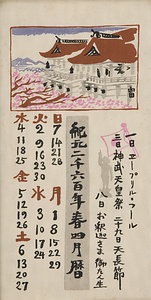 一日 エープリル・フール
三日 神武天皇祭 二十九日 天長節
八日 お釈迦さま御たん生
紀元二千六百年春四月暦
日 7 14 21 28
月 1 8 15 22 29
火 2 9 16 23 30
水 3 10 17 24
木 4 11 18 25
金 5 12 19 26
土 6 13 20 27